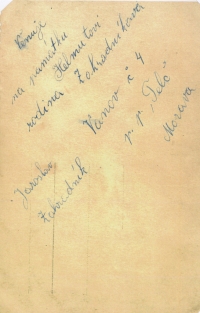 Věnuji
na památku Helmutovi
rodina Zahradníkova
Vanov č 4
p. p. „Telč"
Morava
Jaroslav
Zahradník